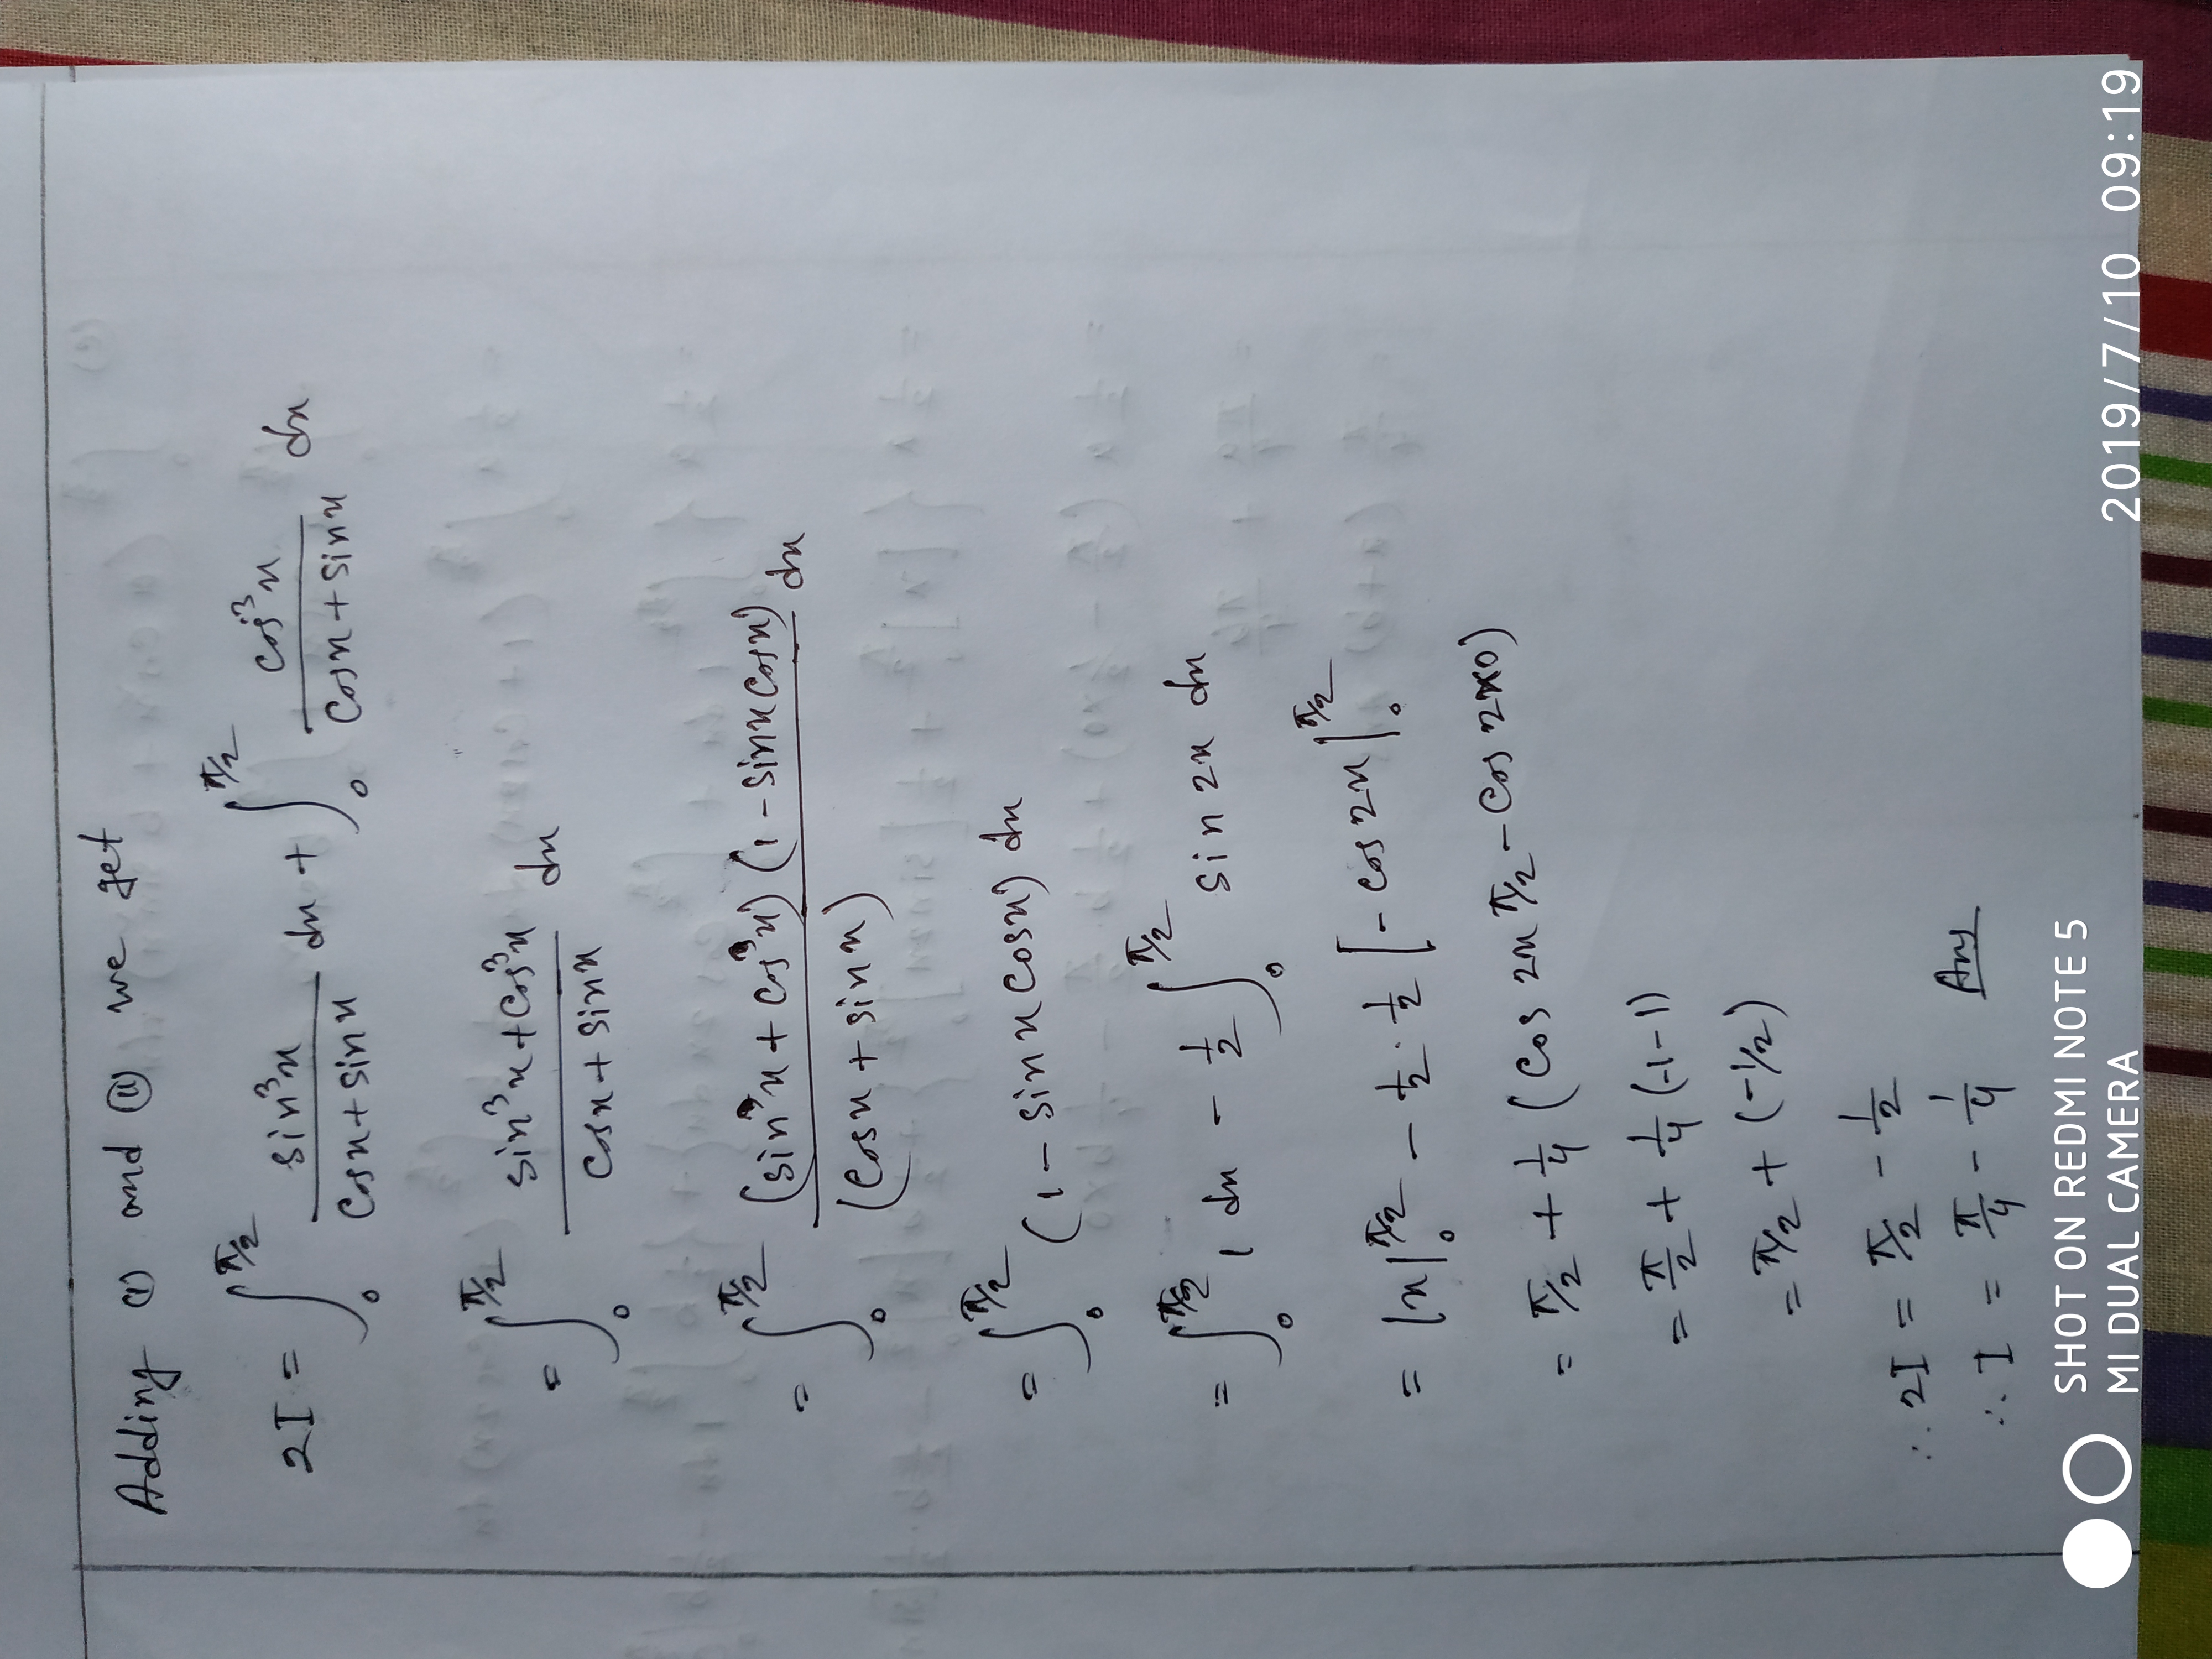 Adding (i) and (ii) we get
2I = ∫₀^{π/2} sin³x / (cosx + sinx) dx + ∫₀^{π/2} cos³x / (cosx + sinx) dx
= ∫₀^{π/2} (sin³x + cos³x) / (cosx + sinx) dx
= ∫₀^{π/2} (sin x + cos x) (1 - sinx cosx) / (cosx + sinx) dx
= ∫₀^{π/2} (1 - sinx cosx) dx
= ∫₀^{π/2} 1 dx - 1/2 ∫₀^{π/2} sin 2x dx
= |x|₀^{π/2} - 1/2 · 1/2 [- cos 2x|₀^{π/2}
= π/2 + 1/4 (cos 2x π/2 - cos 2×0)
= π/2 + 1/4 (-1-1)
= π/2 + (-1/2)
∴ 2I = π/2 - 1/2
∴ I = π/4 - 1/4 Ans
SHOT ON REDMI NOTE 5
MI DUAL CAMERA
2019/7/10 09:19